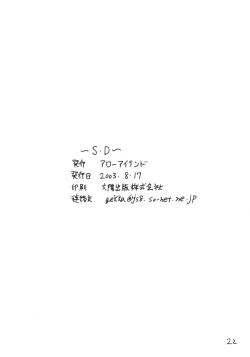 ～S・D～
発行 アローアイランド
発行日 2003. 8. 17
印刷 大陽出版株式会社
連絡先 gekka@js8.so-net.ne.jp
22